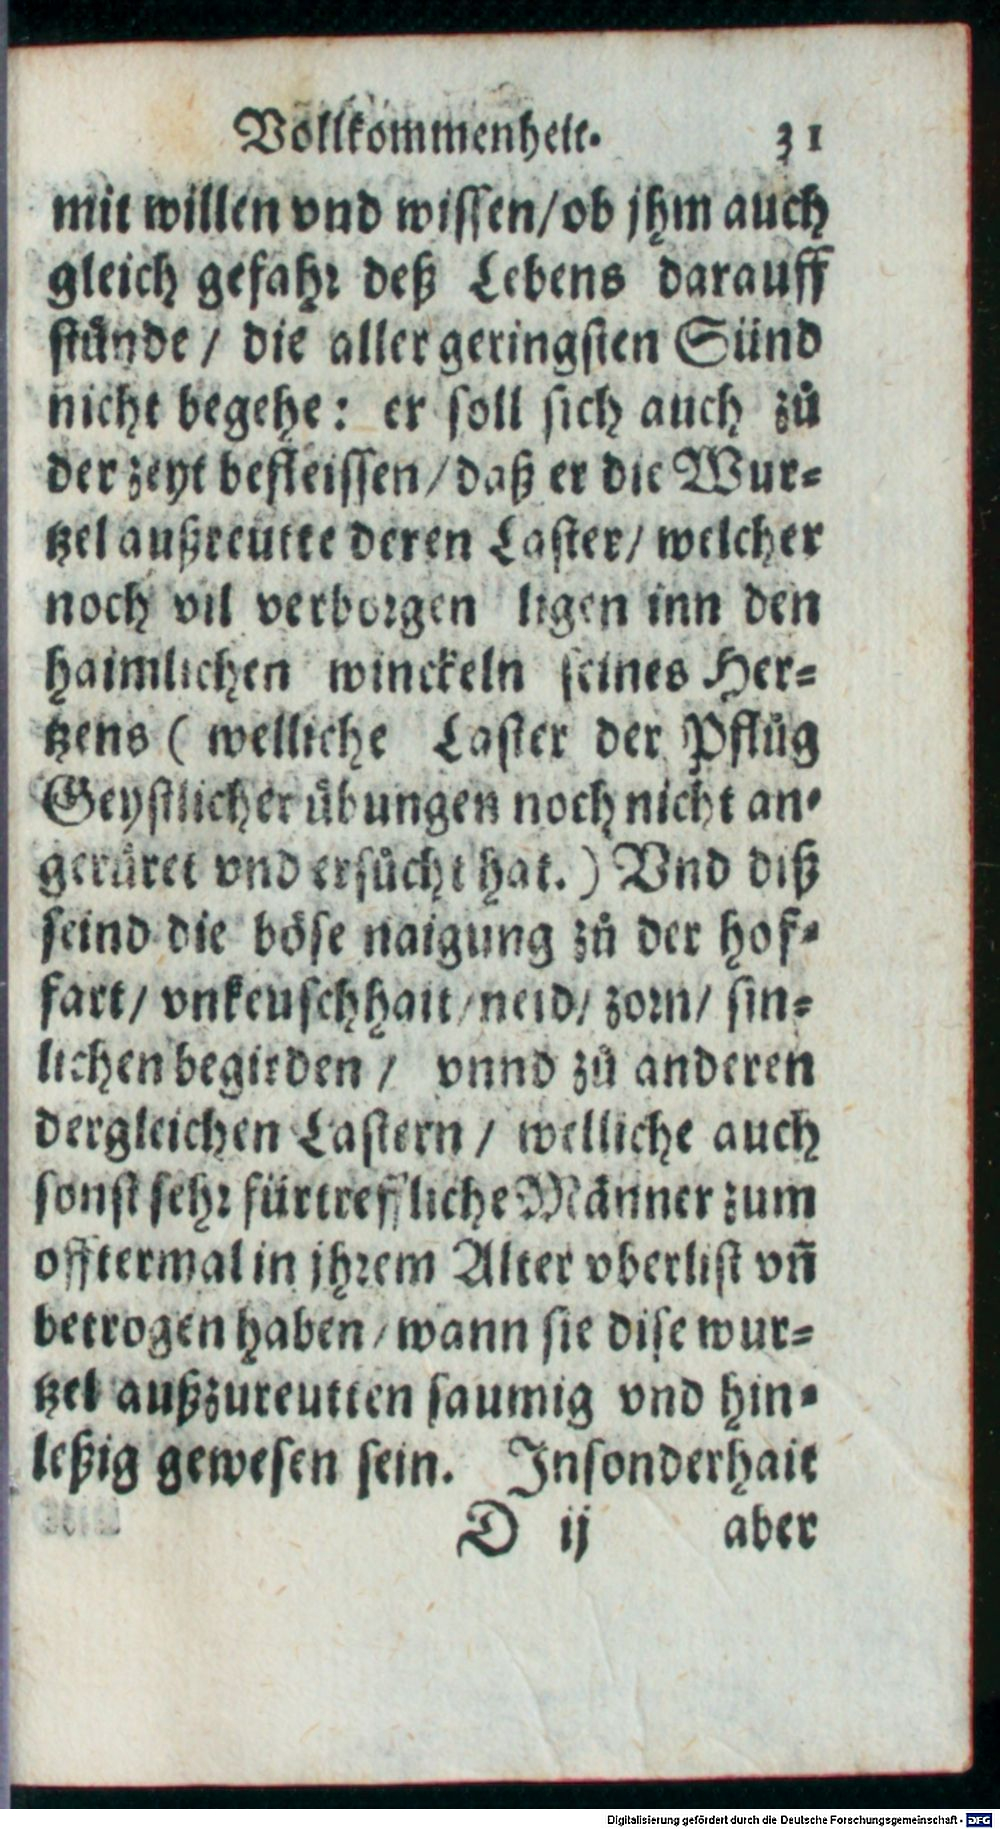 Vollkommenheit. 31
mit willen vnd wissen/ob jhm auch
gleich gefahr deß Lebens darauff
stůnde / die aller geringsten Sünd
nicht begehe: er soll sich auch zů
der zeyt befleissen/daß er die Wur=
tzel außreutte deren Laster/ welcher
noch vil verborgen ligen inn den
haimlichen winckeln seines Her=
tzens ( welliche Laster der Pflůg
Geystlicher übungen noch nicht an=
gerůret vnd ersůcht hat.) Vnd diß
seind die böse naigung zů der hof=
fart/ vnkeuschhait/neid/ zorn/ sin=
lichen begirden / vnnd zů anderen
dergleichen Lastern / welliche auch
sonst sehr fürtreffliche Männer zum
offtermal in jhrem Alter vberlist vñ
betrogen haben/wann sie dise wur=
tzel außzureutten saumig vnd hin=
leßig gewesen sein. Insonderhait
D ij aber
Digitalisierung gefördert durch die Deutsche Forschungsgemeinschaft - DFG